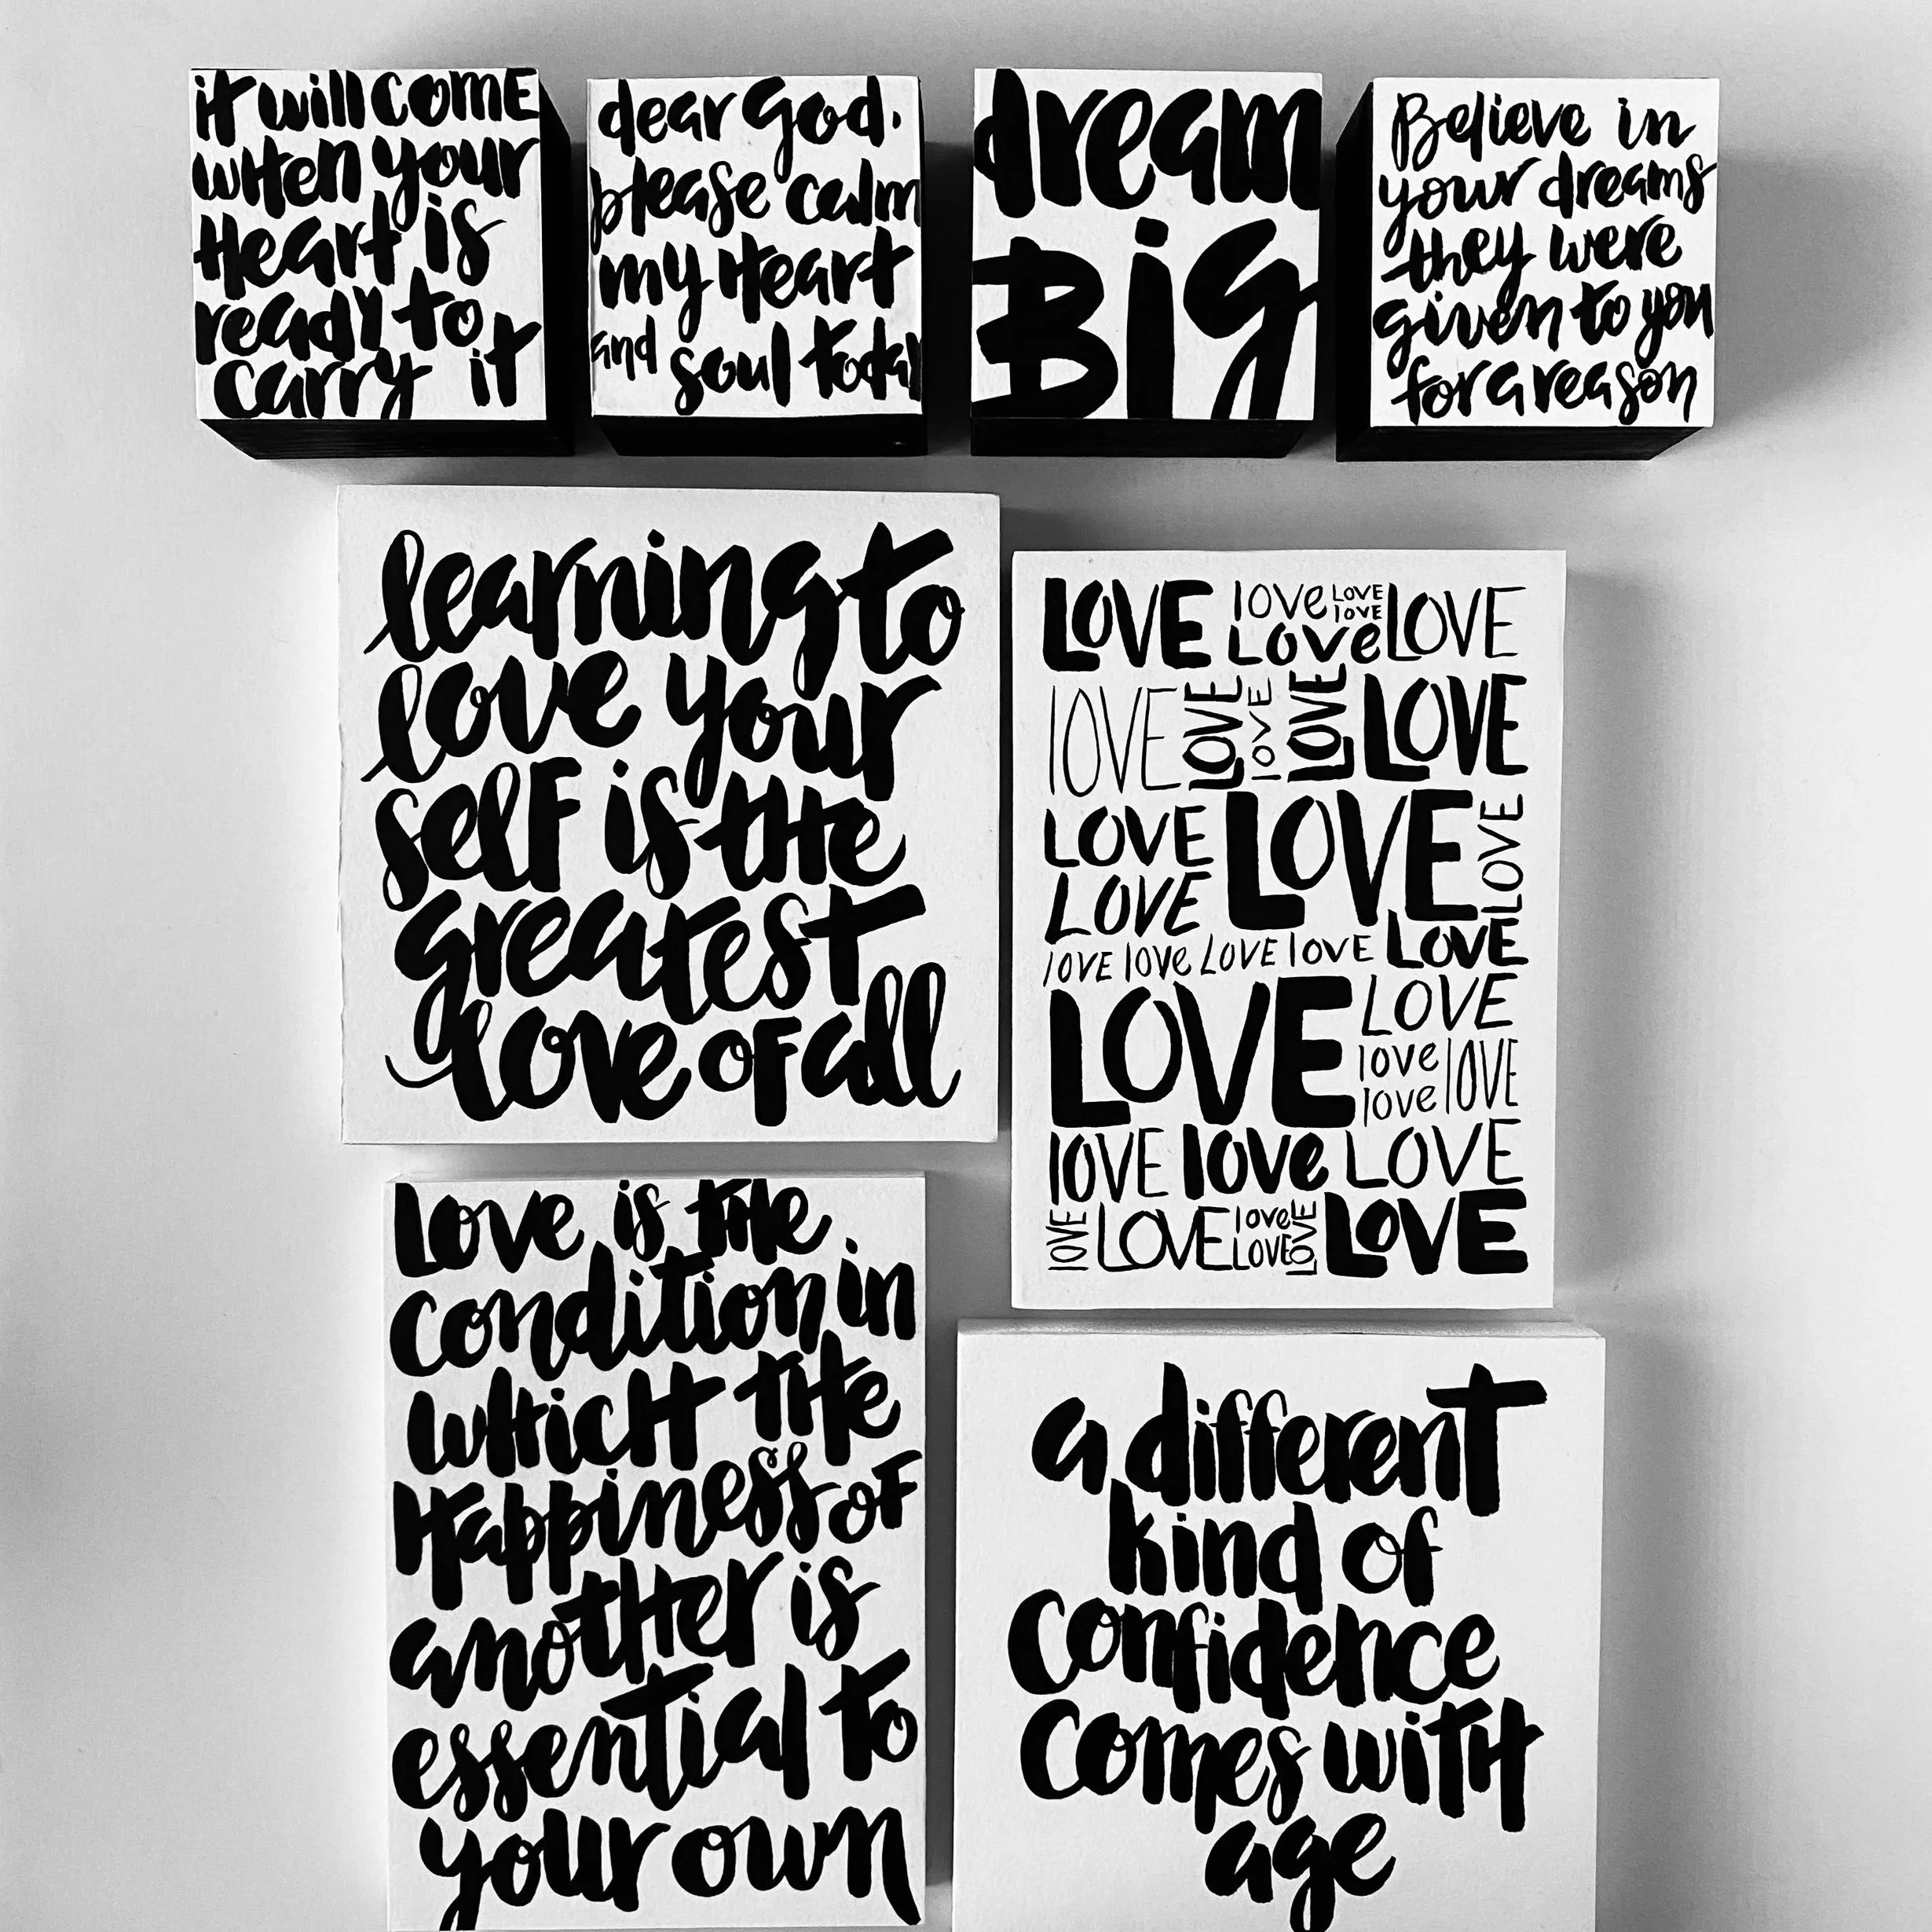 it will come
when your
Heart is
ready to
carry it
dear God.
please calm
my Heart
and soul today
dream
Big
Believe in
your dreams
they were
given to you
for a reason
learning to
love your
self is the
greatest
love of all
LOVE love LOVE LOVE
love
Love
lOVE LOVE lOVE LOVE LOVE
LOVE LOVE LOVE
LOVE
lOVE love LOVE lOVE LOVE
LOVE LOVE
love lOVE
love
lOVE love LOVE
lOVE LOVE love LOVE LOVE
LOVE
Love is the
condition in
which the
Happiness of
another is
essential to
your own
a different
kind of
confidence
comes with
age